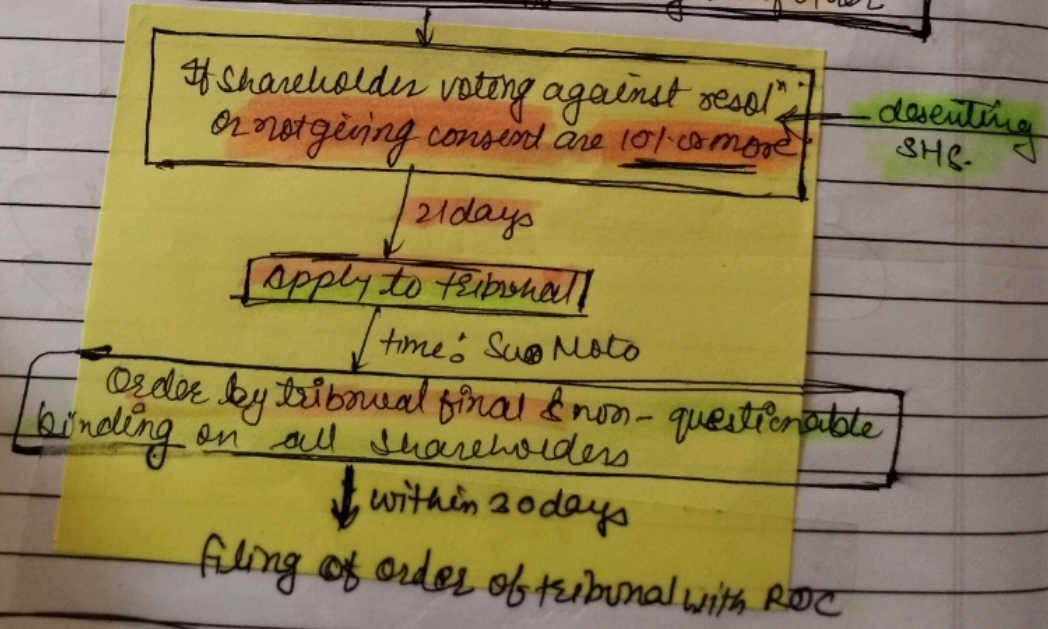 If shareholder voting against resolⁿ
or not giving consent are 10% or more
desenting
SHS.
21 days
Apply to tribunal
time: Suo Moto
Order by tribunal final & non-questionable
binding on all shareholders
within 30 days
filing of order of tribunal with ROC